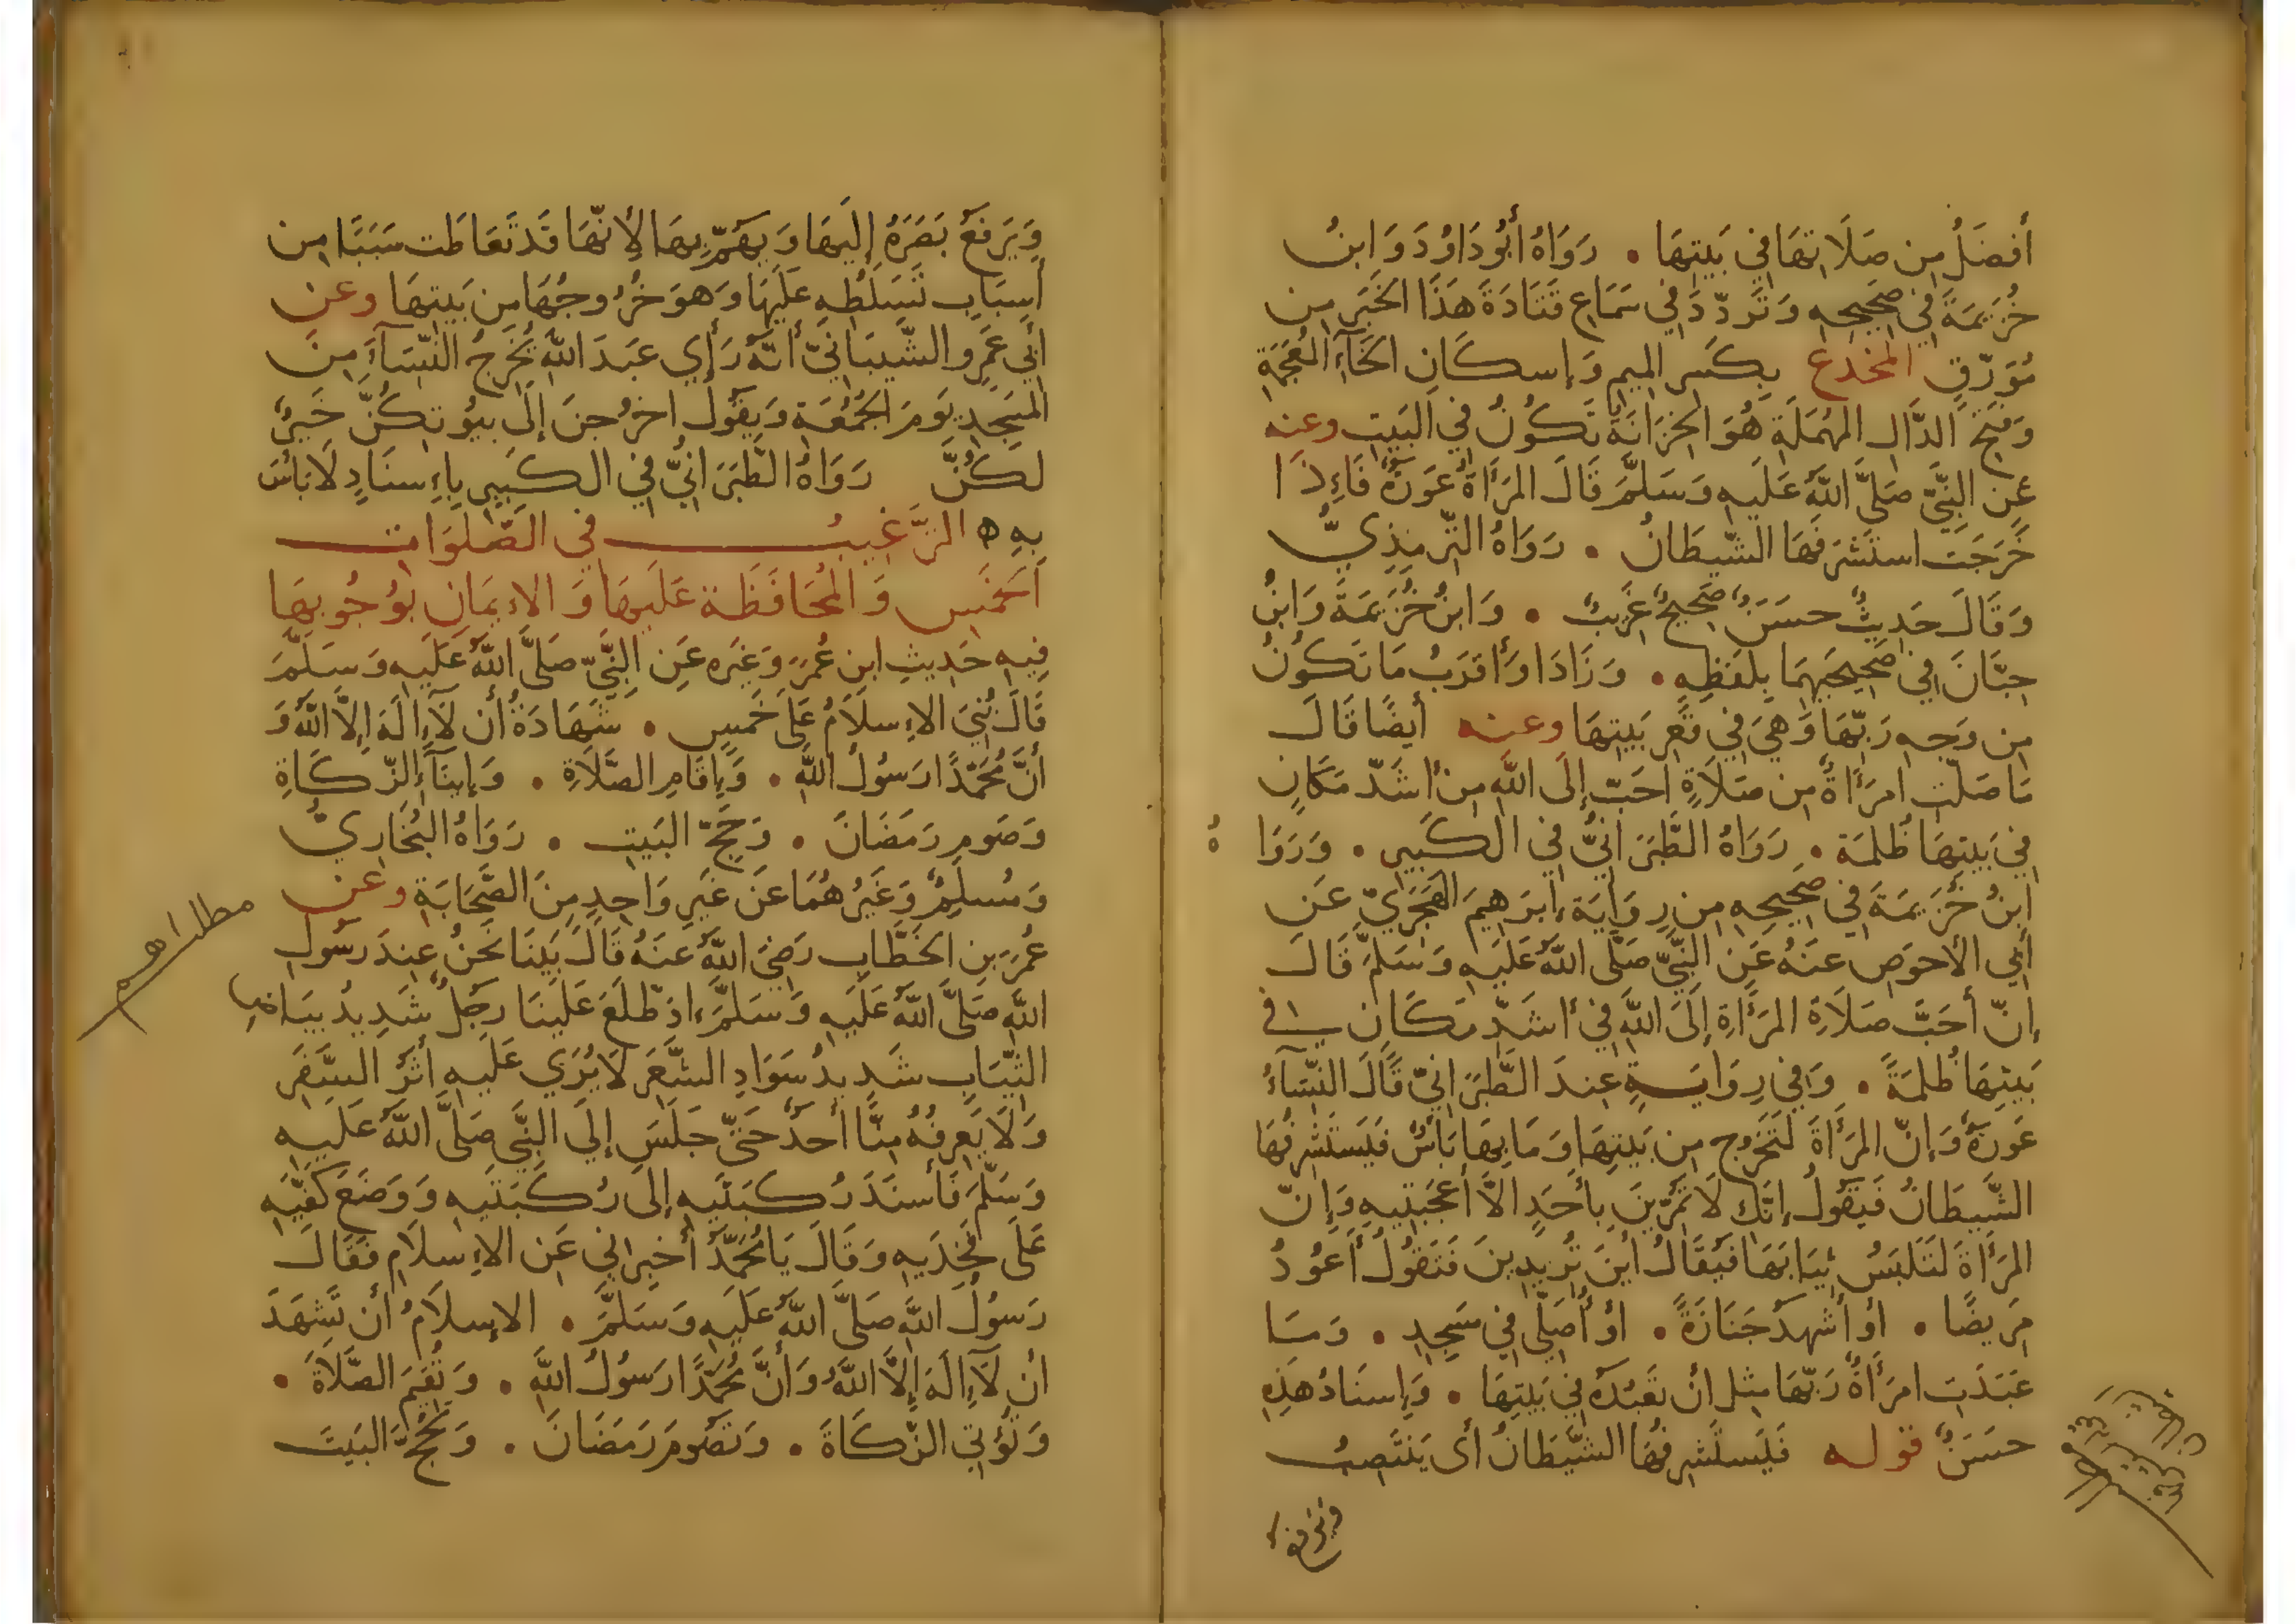 أَفضَلُ مِن صَلَاتِهَا فِي بَيتِهَا • رَوَاهُ أَبُو دَاوُدَ وَابنُ
خُزَيمَةَ فِي صَحِيحِهِ وَتَرَدّدَ فِي سَمَاعِ قَتَادَةَ هَذَا الخَبَرِ مِن
مُوَرّقٍ المخدع بِكَسرِ المِيمِ وَإِسكَانِ الخَآءِ المُعجَمَةِ
وَفَتحِ الدَّالِ المُهمَلَةِ هُوَ الخِزَانَةُ تَكُونُ فِي البَيتِ وعنه
عَنِ النَّبِيِّ صَلَّى اللَّهُ عَلَيهِ وَسَلَّمَ قَالَ المَرَأَةُ عَورَةٌ فَإِذَا
خَرَجَت استَشرَفَهَا الشَّيطَانُ • رَوَاهُ التِّرمِذِيُّ
وَقَالَ حَدِيثٌ حسَنٌ صَحِيحٌ غَرِيبٌ • وَابنُ خُزَيمَةَ وَابنُ
حِبَّانَ فِي صَحِيحَيهِمَا بِلَفظِهِ • وَزَادَا وَأَقرَبُ مَا تَكُونُ
مِن وَجهِ رَبِّهَا وَهِيَ فِي قَعرِ بَيتِهَا وعنه أَيضًا قَالَ
مَا صَلَّت امرَأَةٌ مِن صَلَاةٍ أَحَبّ إِلَى اللَّهِ مِن أَشَدّ مَكَانٍ
فِي بَيتِهَا ظُلمَة • رَوَاهُ الطَّبَرَانِيُّ فِي الكَبِيرِ • وَرَوَاهُ
ابنُ خُزَيمَةَ فِي صَحِيحِهِ مِن رِوَايَةِ إِبرَهِيمَ الهَجَرِيّ عَن
أَبِي الأَحوَصِ عَنهُ عَنِ النَّبِيّ صَلَّى اللَّهُ عَلَيهِ وَسَلَّمَ قَالَ
إِنّ أَحَبَّ صَلَاةِ المَرأَةِ إِلَى اللَّهِ فِي أَشَدِّ مَكَانٍ في
بَيتِهَا ظُلمَةً • وَفِي رِوَايَةٍ عِندَ الطَّبَرَانِيّ قَالَ النِّسَآءُ
عَورَةٌ وَإِنّ المَرأَةَ لَتَخرُج مِن بَيتِهَا وَمَا بِهَا بَأسٌ فَيَستَشرِفُهَا
الشَّيطَانُ فَيَقُولُ إِنَّكِ لَا تَمُرّينَ بِأَحَدٍ الاَّ أَعجَبتِيهِ وَإِنّ
المَرأَةَ لَتَلبَسُ ثِيَابَهَا فَيُقَالُ أَينَ تُرِيدِينَ فَتَقُولُ أَعُودُ
مَرِيضًا • أَو أَشهَدُ جَنَازَةً • أَو أُصَلِّي فِي مَسجِدٍ • وَمَا
عَبَدَتِ امرَأَةٌ رَبّهَا مِثل أَن تَعبُدَهُ فِي بَيتِهَا • وَإِسنَادُ هَذِهِ
حسَنٌ قوله فَيَستَشرِفُهَا الشَّيطَانُ أَى يَنتَصِبُ
ويرفع
وَيَرفَعُ بَصَرَهُ إِلَيهَا وَيَهُمّ بِهَا لأَنّهَا قَد تَعَاطَت سَبَبًا مِن
أَسبَابِ تَسَلّطِهِ عَلَيهَا وَهوَ خُرُوجُهَا مِن بَيتِهَا وعن
أَبِي عَمرٍو الشَّيبَانِيّ أَنّهُ رَأَي عَبدَ اللَّهِ يُخرِجُ النِّسَآءَ مِنَ
المَسجِدِ يَومَ الجُمُعَةِ وَيَقُولُ اخرُجنَ إِلَى بيُوتِكُنَّ خَيرٌ
لَكُنَّ رَوَاهُ الطَّبَرَانِيُّ فِي الكَبِيرِ بِإِسنَادٍ لَا بَأسَ
بِهِ ه التَّرغِيبُ فِي الصَّلَوَات
الخَمسِ وَالمُحَافَظَة عَلَيهَا وَالإِيمَانِ بِوُجُوبِهَا
فِيهِ حَدِيثِ ابنِ عُمَرَ وَغَيرِه عَنِ النَّبِيّ صَلَّى اللَّهُ عَلَيهِ وَسَلَّمَ
قَالَ بُنِيَ الإِسلَامُ عَلَى خَمسٍ • شَهَادَةُ أَن لَآ إِلَهَ إِلاَّ اللَّهُ وَ
أَنَّ مُحَمَّدًا رَسُولُ اللَّهِ • وَإِقَامِ الصَّلَاةِ • وَإِيتَآءِ الزَّكَاةِ
وَصَومِ رَمَضَانَ • وَحَجّ البَيتِ • رَوَاهُ البُخَارِيُّ
وَمُسلِمٌ وَغَيرُهُمَا عَن غَيرِ وَاحِدٍ مِنَ الصَّحَابَةِ وعن
عُمَرَ بنِ الخَطَّابِ رَضِيَ اللَّهُ عَنهُ قَالَ بَينَا نَحنُ عِندَ رَسُولِ
اللَّهِ صَلَّى اللَّهُ عَلَيهِ وَسَلَّمَ إِذ طَلَعَ عَلَينَا رَجُلٌ شَدِيدُ بيَاضِ
الثِّيَابِ شَدِيدُ سَوَادِ الشَّعَرِ لَا يُرَي عَلَيهِ أَثَرُ السَّفَرِ
وَلَا يَعرِفُهُ مِنَّا أَحدٌ حَتَّى جَلَسَ إِلَي النَّبِيّ صَلَّى اللَّهُ عَلَيهِ
وَسَلَّمَ فَأَسنَدَ رُكبَتَيهِ إِلَى رُكبَتَيهِ وَوَضَعَ كَفَّيهِ
عَلَى فَخِذَيهِ وَقَالَ يَا مُحَمَّدُ أَخبِرنِي عَنِ الإِسلَامِ فَقَالَ
رَسُولُ اللَّهِ صَلَّى اللَّهُ عَلَيهِ وَسَلَّمَ • الإِسلَامُ أَن تَشهَدَ
أَن لَآ إِلَهَ إِلاَّ اللَّهُ وَأَنَّ مُحَمَّدًا رَسُولُ اللَّهِ • وَتُقِيمَ الصَّلَاةَ •
وَتُؤتِيَ الزَّكَاةَ • وَتَصُومَ رَمَضَانَ • وَتَحُجَّ البَيتَ